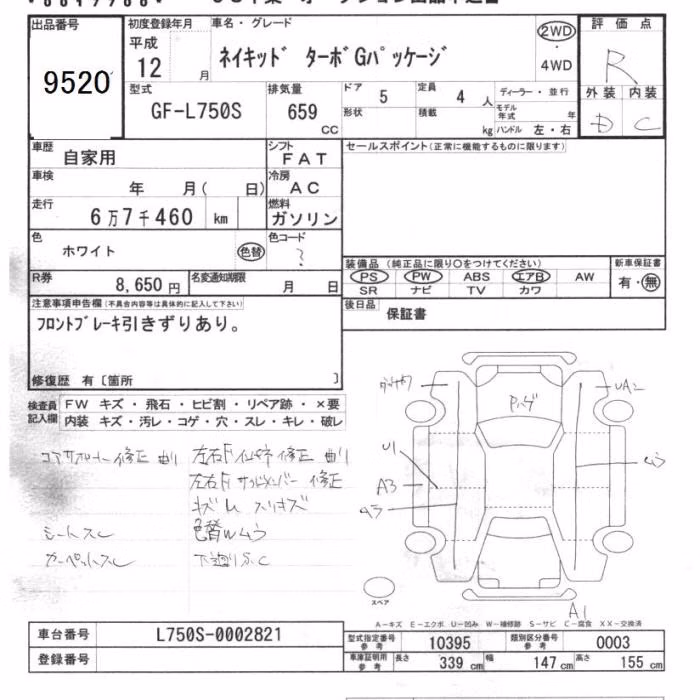 出品番号
9520
初度登録年月
平成
12 月
車名・グレード
ネイキッド ターボGパッケージ
2WD
・
4WD
評価点
R
外装 内装
D C
型式
GF-L750S
排気量
659
CC
ドア 5
定員 4 人
ディーラー・並行
形状
積載 kg
モデル年式 年
ハンドル 左・右
車歴
自家用
シフト
FAT
車検
年 月( 日)
冷房
AC
走行
6万7千460 km
燃料
ガソリン
色
ホワイト
色替
色コード
?
R券
8,650 円
名変通知期限
月 日
セールスポイント(正常に機能するものに限ります)
装備品 (純正品に限り○をつけてください)
PS PW ABS エアB AW
SR ナビ TV カワ
新車保証書
有・無
後日品
保証書
注意事項申告欄(不具合内容等は具体的に記入して下さい)
フロントブレーキ引きずりあり。
修復歴 有〔箇所 〕
検査員
記入欄
FW キズ・飛石・ヒビ割・リペア跡・×要
内装 キズ・汚レ・コゲ・穴・スレ・キレ・破レ
コアサポートー修正 曲り
左右Fインサイド修正 曲り
左右Fサイドメンバー 修正
キズ凹 スリキズ
シートスレ
色替Wムラ
カーペットスレ
下廻りS、C
UA2
U1
A3
A3
A1
スペア
A-キズ E-エクボ U-凹み W-補修跡 S-サビ C-腐食 XX-交換済
車台番号
L750S-0002821
登録番号
型式指定番号
参考
10395
類別区分番号
参考
0003
車庫証明用
参考
長さ 339 cm
幅 147 cm
高さ 155 cm